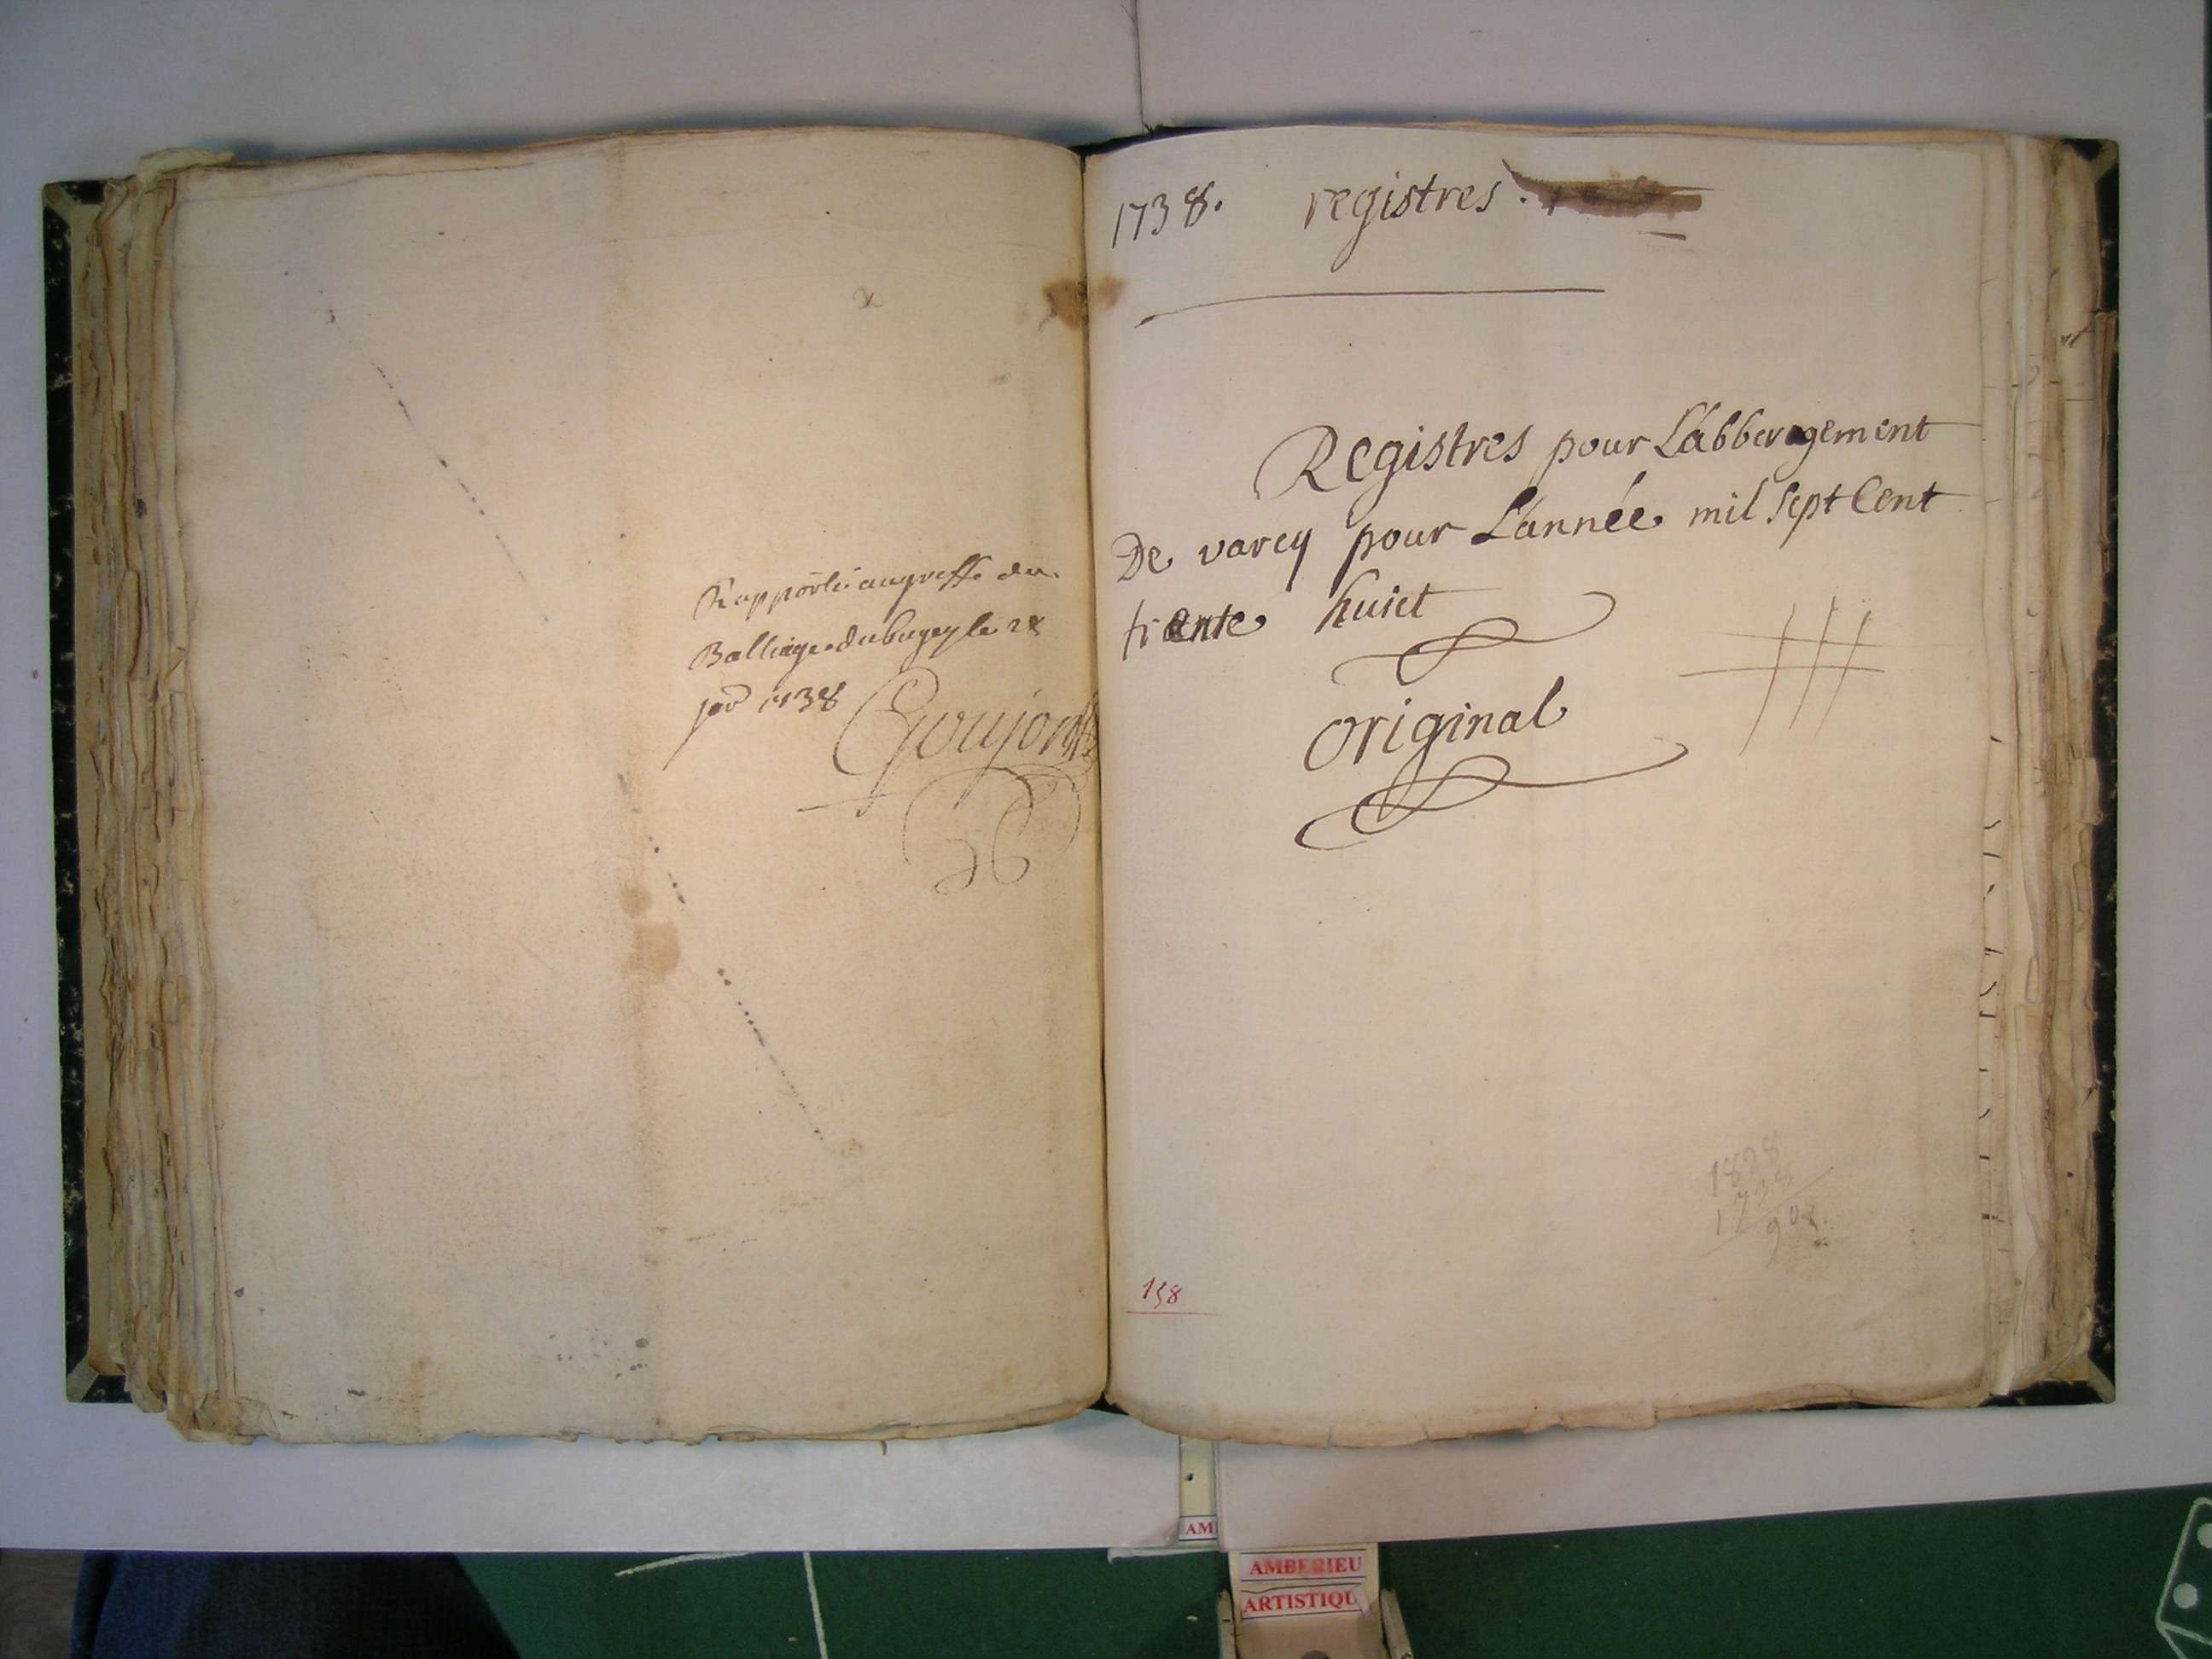 Rapporté au greffe du
Balliage du bugey le 28
jer 1738
Goujon
1738. registres.
Registres pour L'abbergement
De varey pour L'année mil sept Cent
trante huict
original
1828
1738
90
158
AM
AMBERIEU
ARTISTIQU